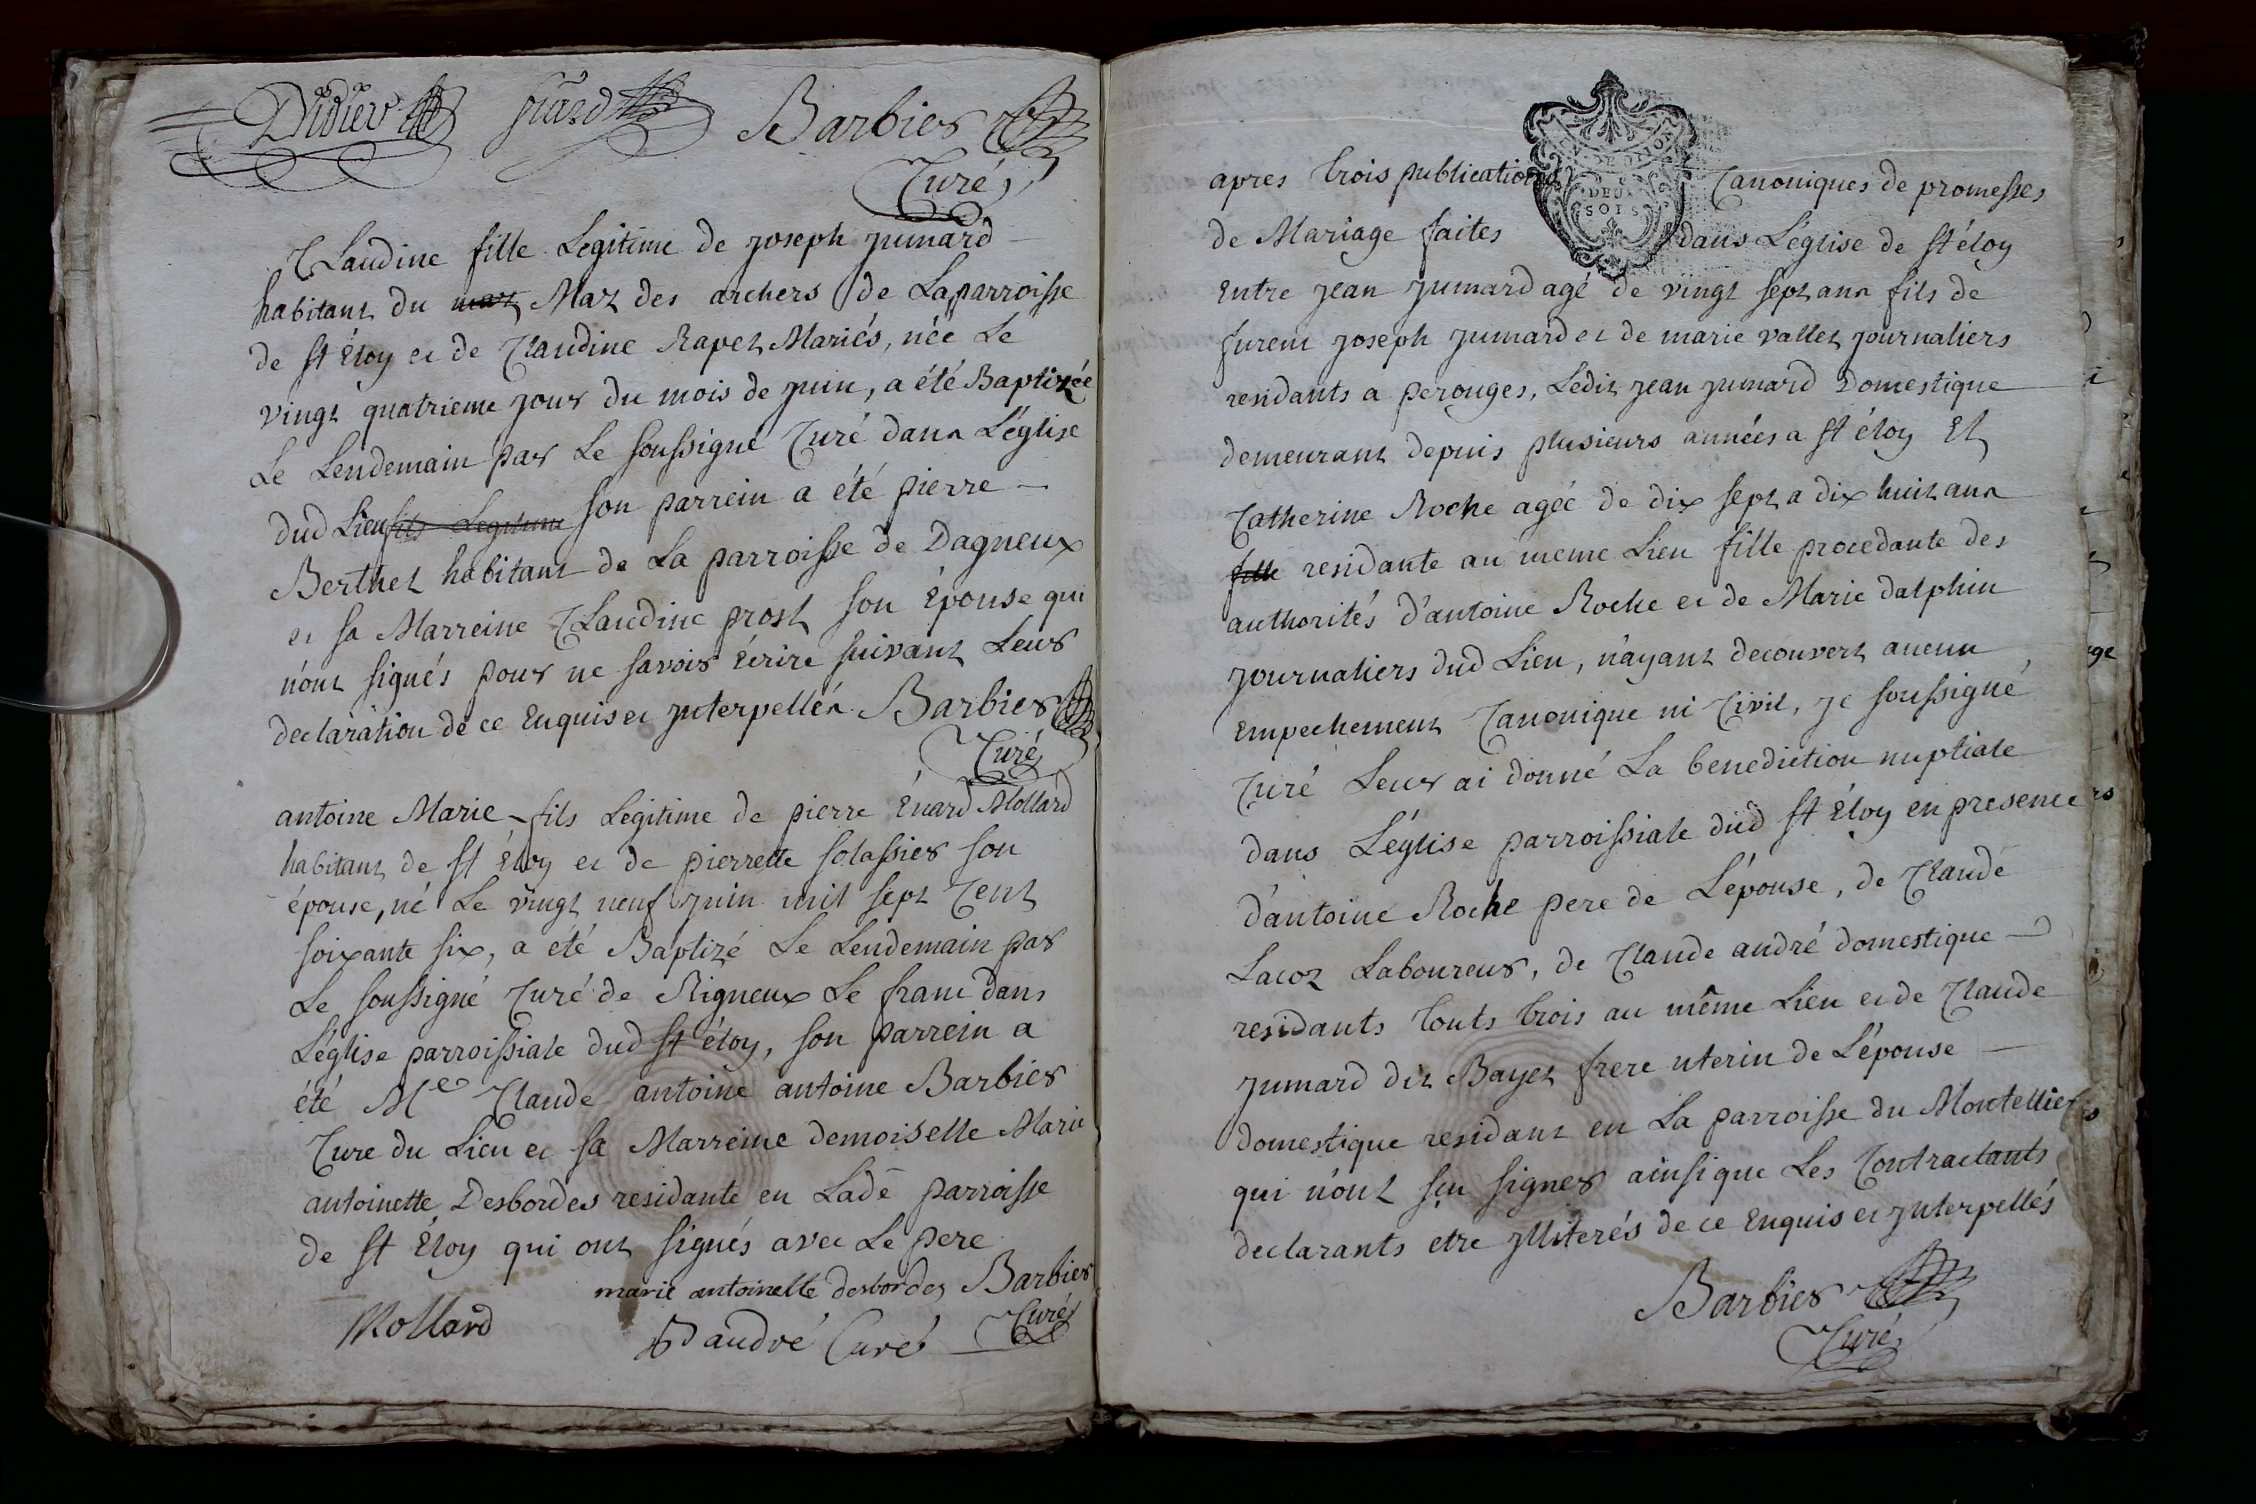 Didier Juard Barbier
Curé
Claudine fille Legitime de Joseph Jumard
habitant du mas Maz des archers de Laparroisse
de St Eloy et de Claudine Rapet Mariés, née Le
vingt quatrieme jour du mois de juin, a été Baptizée
Le Lendemain par Le soussigné Curé dans L'église
dud Lieu fils Legitime son parrein a été pierre
Berthet habitant de La parroisse de Dagneux
et sa Marreine Claudine prost son Epouse qui
n'ont signés pour ne savoir Ecrire suivant Leur
declaration de ce Enquis et Interpellés. Barbier
Curé
antoine Marie fils Legitime de pierre Enard Mollard
habitant de St Eloy et de pierrette solassier son
épouse, né Le vingt neuf juin mil sept Cent
soixante six, a été Baptizé Le Lendemain par
Le soussigné Curé de Rigneux Le franc dans
L'église parroissiale dud St éloy, son parrein a
été Me Claude antoine antoine Barbier
Cure du Lieu et sa Marreine demoiselle Marie
antoinette Desbordes residante en Lade parroisse
de St Eloy qui ont signés avec Le pere
marie antoinette desbordes Barbier
Mollard Baudré Curé Curé
DEUX
SOLS
apres trois publications Canoniques de promesses
de Mariage faites dans L'église de St éloy
Entre Jean Jumard agé de vingt sept ans fils de
furent Joseph Jumard et de marie vallet Journaliers
residants a perouges, Ledit Jean Jumard Domestique
demeurant depuis plusieurs années a St éloy Et
Catherine Roche agée de dix sept a dix huit ans
fille residante au meme Lieu fille procedante des
authorités d'antoine Roche et de Marie dalphin
Journaliers dud Lieu, n'ayant decouvert aucun
Empechement Canonique ni Civil, je soussigné
Curé Leur ai donné La benediction nuptiale
dans L'église parroissiale dud St Eloy en presence
d'antoine Roche pere de L'épouse, de Claude
Lacoz Laboureur, de Claude andré domestique
residants touts trois au même Lieu et de Claude
Jumard dit Bayet frere uterin de L'épouse
domestique residant en La parroisse du Montellier
qui n'ont sçu signer ainsi que Les Contractants
declarants etre Illiterés de ce Enquis et Interpellés
Barbier
Curé